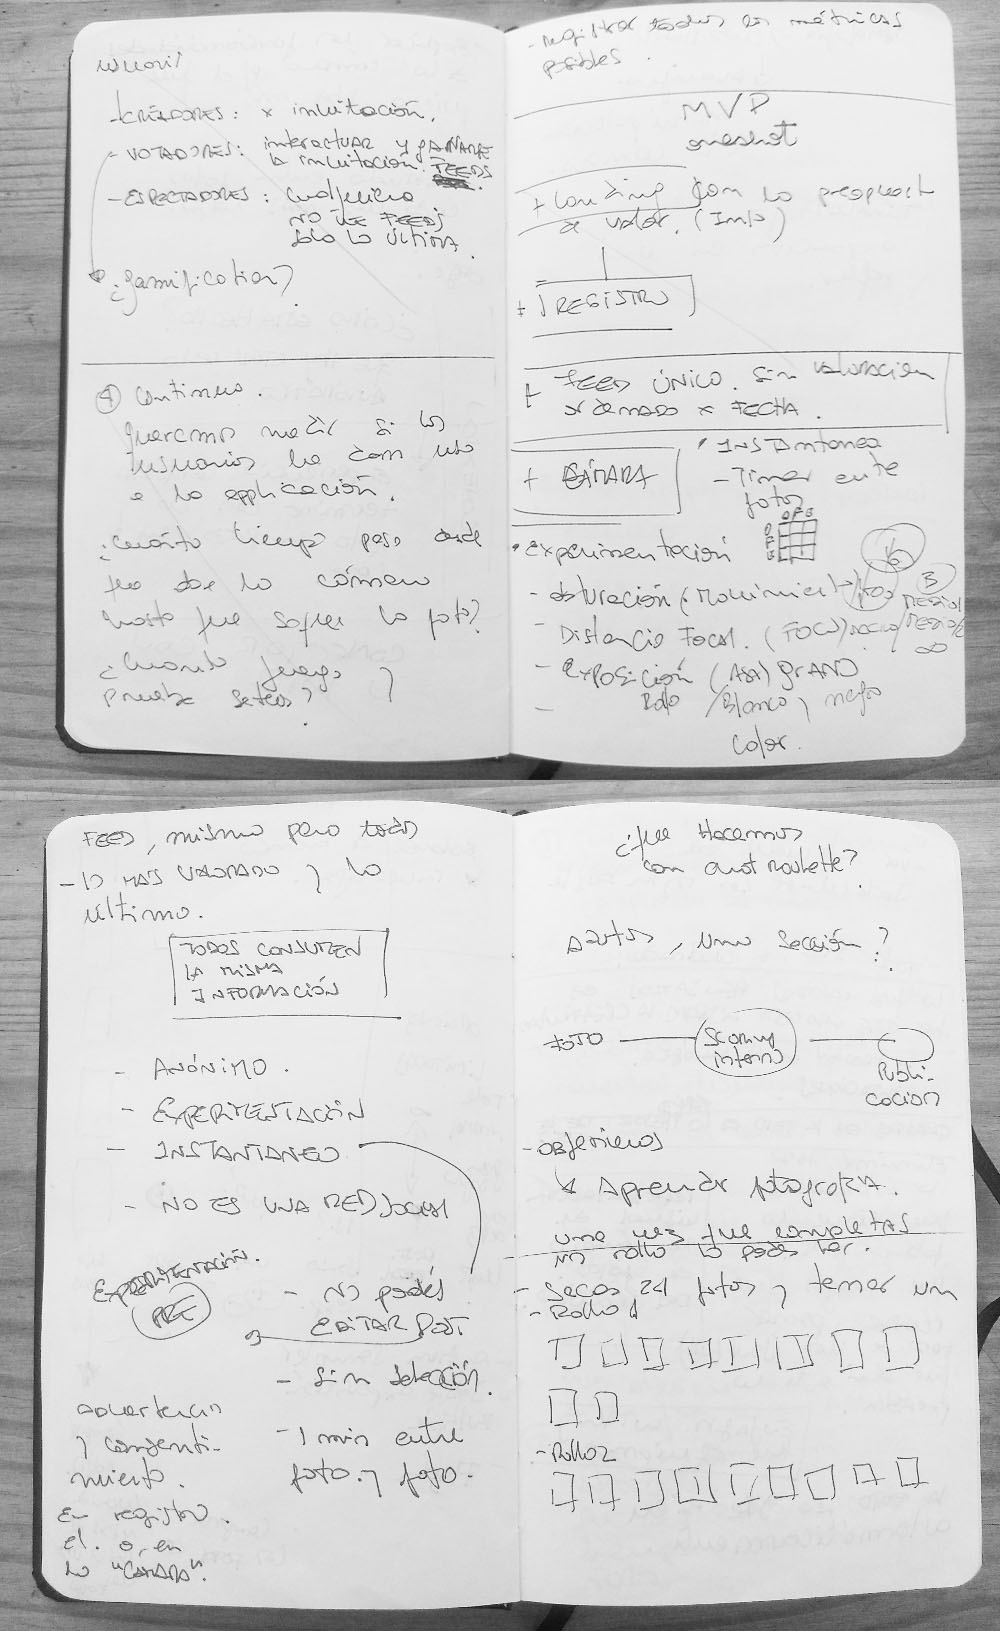 -CREADORES: x invitación.
- VOTADORES: interactuar y GANARSE
la invitación. FEEDS
- ESPECTADORES: cualquiera
NO VE FEEDS
SOLO LO ÚLTIMA.
¿gamification?
④ Continuo.
queremos medir si los
usuarios le dan uso
a la applicación.
¿cuánto tiempo pasa desde
que abre la cámara
hasta que sacan la foto?
¿cuando juega y
prueba seteos?
- registrar todas las métricas
posibles.
MVP
oneshot
+ Landing con la propuesta
de valor. (Info)
+ REGISTRO
+ FEED ÚNICO. Sin valoración
ordenado x FECHA.
+ CÁMARA
• INSTANTANEA
- Timer entre
fotos
• Experimentación
- obturación (Movimiento)
- Distancia Focal. (FOCO)
- Exposición (ASA) GRANO
- Rollo / Blanco y negro
Color.
FEED, mismo para todos
- lo MAS VALORADO y lo
último.
TODOS CONSUMEN
LA MISMA
INFORMACIÓN
- ANÓNIMO.
- EXPERIMENTACIÓN
- INSTANTANEO
- NO ES UNA RED SOCIAL
EXPERIMENTACIÓN.
PRE
- No podés
EDITAR POST
- Sin selección.
- 1 min entre
foto y foto.
advertencia
y consenti-
miento.
En registro.
el. o, en
la "CÁMARA".
¿Que Hacemos
con chatroulette?
DZUTOS, una sección?
FOTO
Scoring
interno
Publi-
cación
- objetivos
↳ Aprender fotografía.
una vez que completas
un rollo lo podes ver.
- Sacas 24 fotos y tenes un
- Rollo 1
- Rollo 2